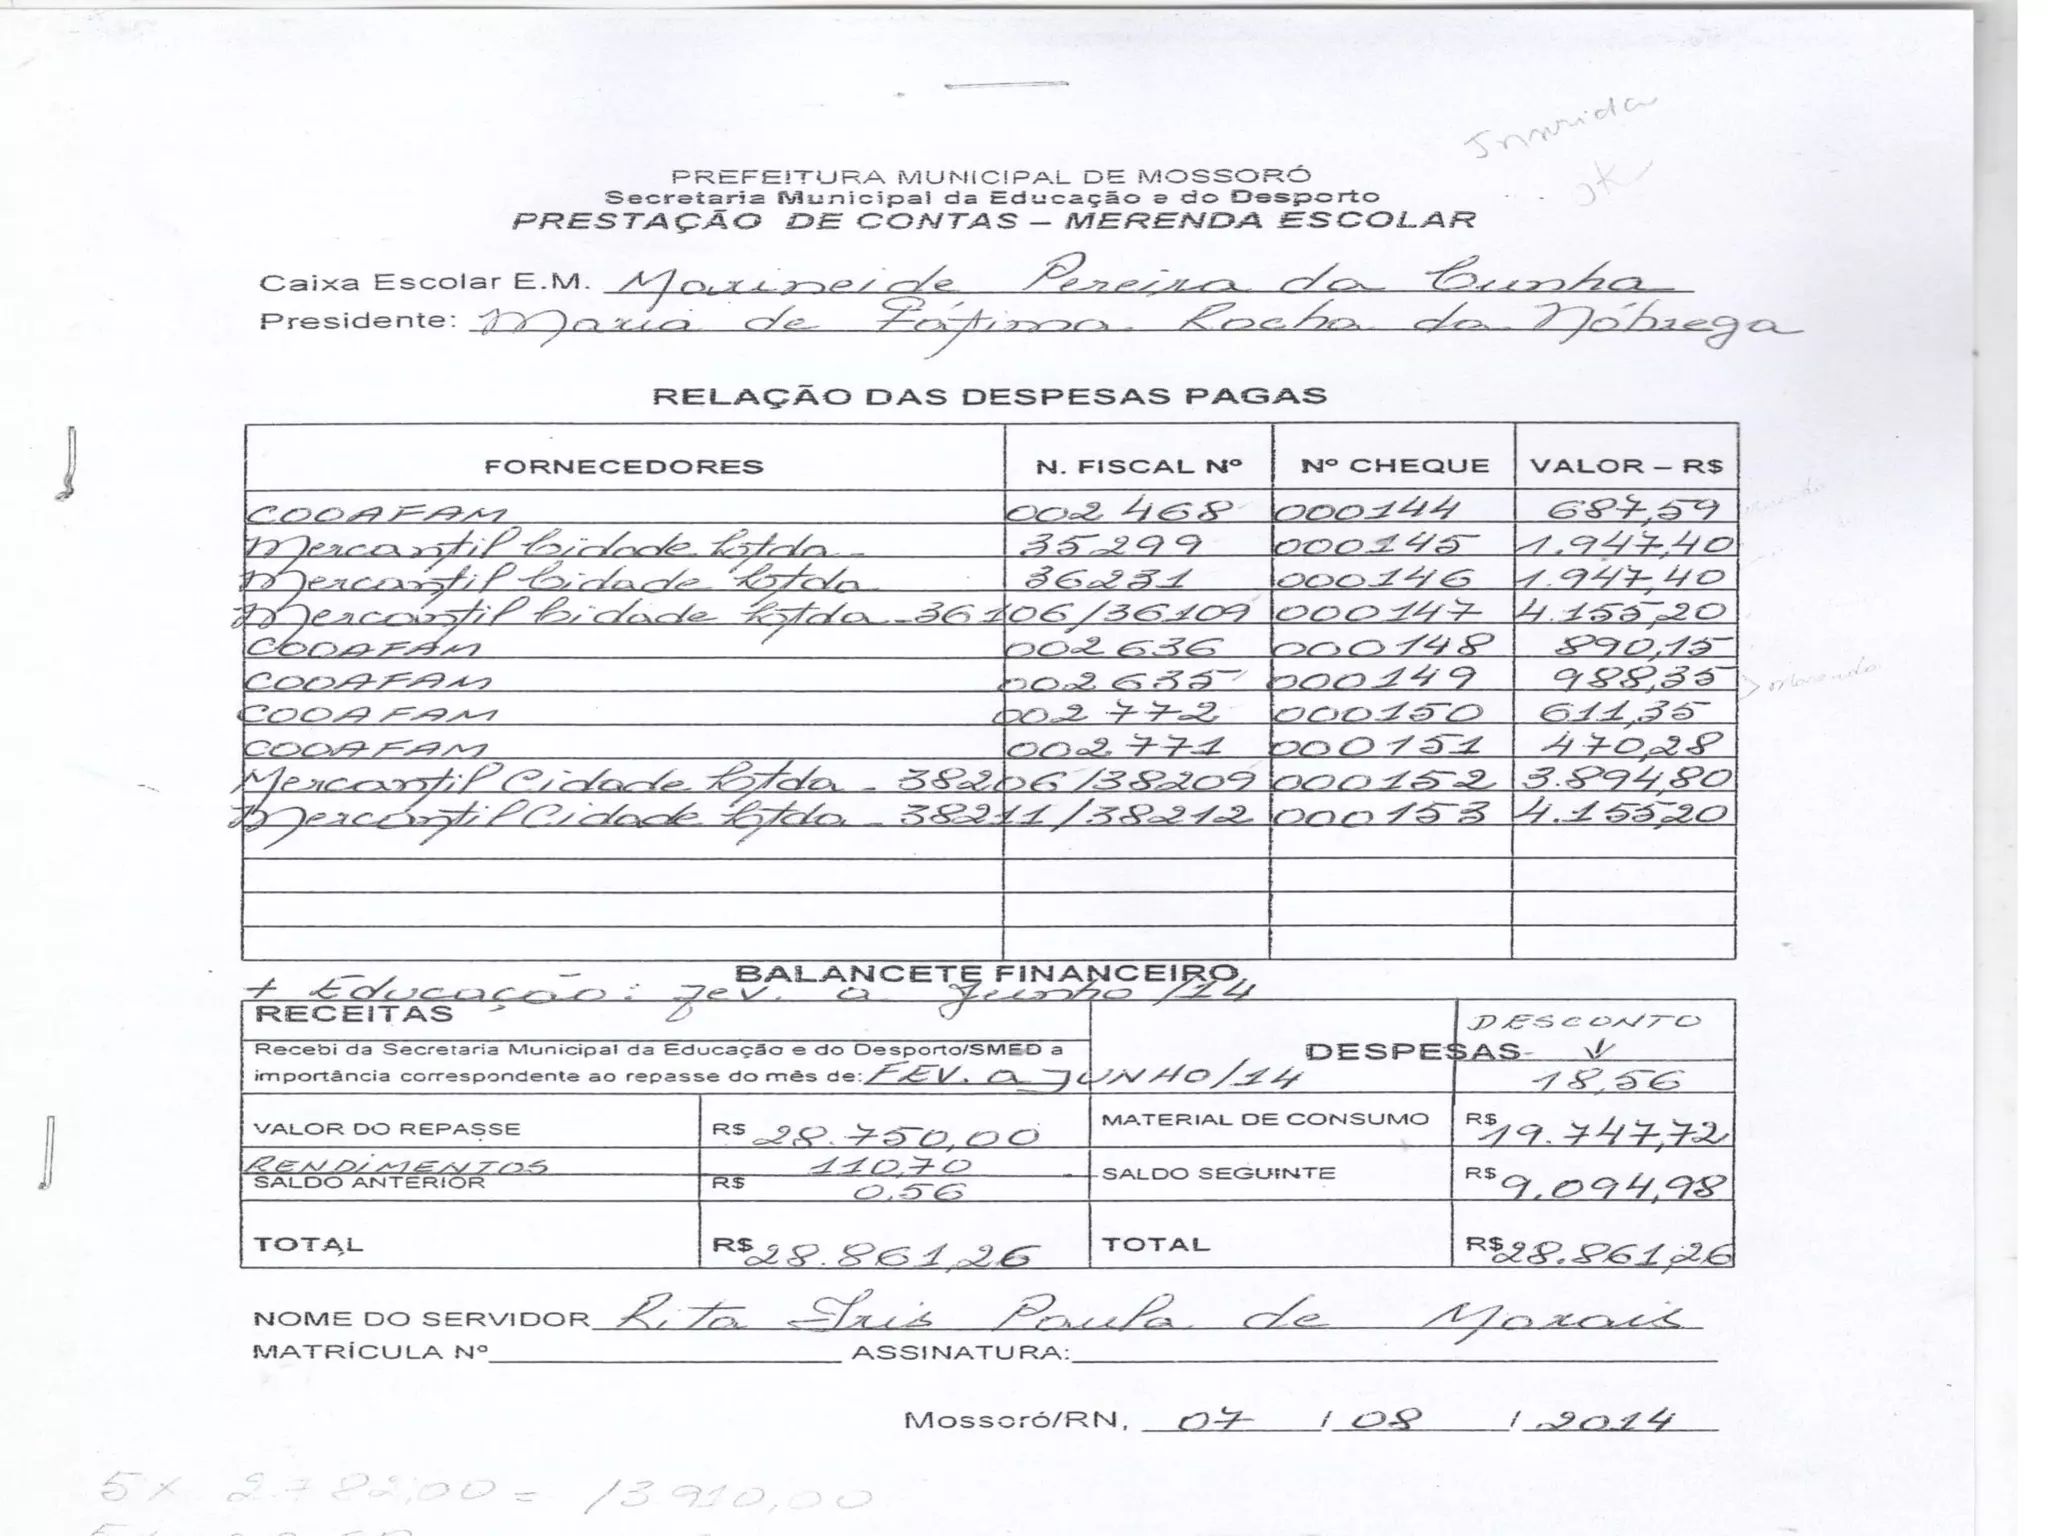 PREFEITURA MUNICIPAL DE MOSSORÓ
Secretaria Municipal da Educação e do Desporto
PRESTAÇÃO DE CONTAS – MERENDA ESCOLAR
Caixa Escolar E.M. Marineide Pereira da Cunha
Presidente: Maria de Fátima Rocha da Nóbrega
RELAÇÃO DAS DESPESAS PAGAS
FORNECEDORES N. FISCAL Nº Nº CHEQUE VALOR – R$
COOAFAM 002468 000144 687,59
Mercantil Cidade Ltda - 35299 000145 1.947,40
Mercantil Cidade Ltda 36231 000146 1.947,40
Mercantil Cidade Ltda - 36106/36109 000147 4.155,20
COOAFAM 002636 000148 890,15
COOAFAM 002635 000149 988,35
COOAFAM 002772 000150 611,35
COOAFAM 002771 000151 470,28
Mercantil Cidade Ltda - 38206/38209 000152 3.894,80
Mercantil Cidade Ltda - 38211/38212 000153 4.155,20
BALANCETE FINANCEIRO
+ Educação: fev. a Junho/14
RECEITAS DESCONTO
Recebi da Secretaria Municipal da Educação e do Desporto/SMED a DESPESAS
importância correspondente ao repasse do mês de: FEV. a JUNHO/14 18,56
VALOR DO REPASSE R$ 28.750,00 MATERIAL DE CONSUMO R$ 19.747,72
RENDIMENTOS 110,70
SALDO ANTERIOR R$ 0,56 SALDO SEGUINTE R$ 9.094,98
TOTAL R$ 28.861,26 TOTAL R$ 28.861,26
NOME DO SERVIDOR Rita Iris Paula de Morais
MATRÍCULA Nº ASSINATURA:
Mossoró/RN, 07 / 08 / 2014
5 x 2.782,00 = 13.910,00